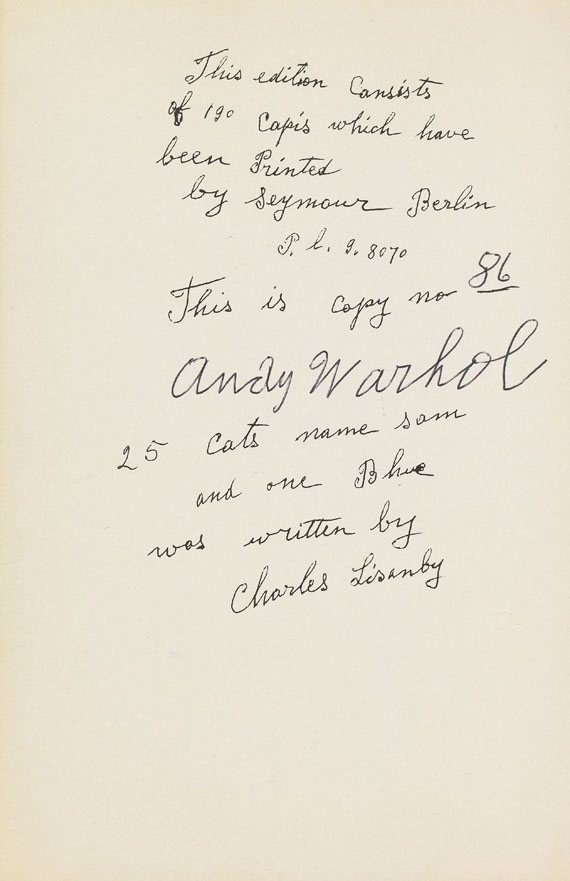 This edition Consists
of 190 Capis which have
been Printed
by Seymour Berlin
P. l. 9. 8070
This is copy no 86
Andy Warhol
25 Cats name sam
and one Blue
was written by
Charles Lisanby